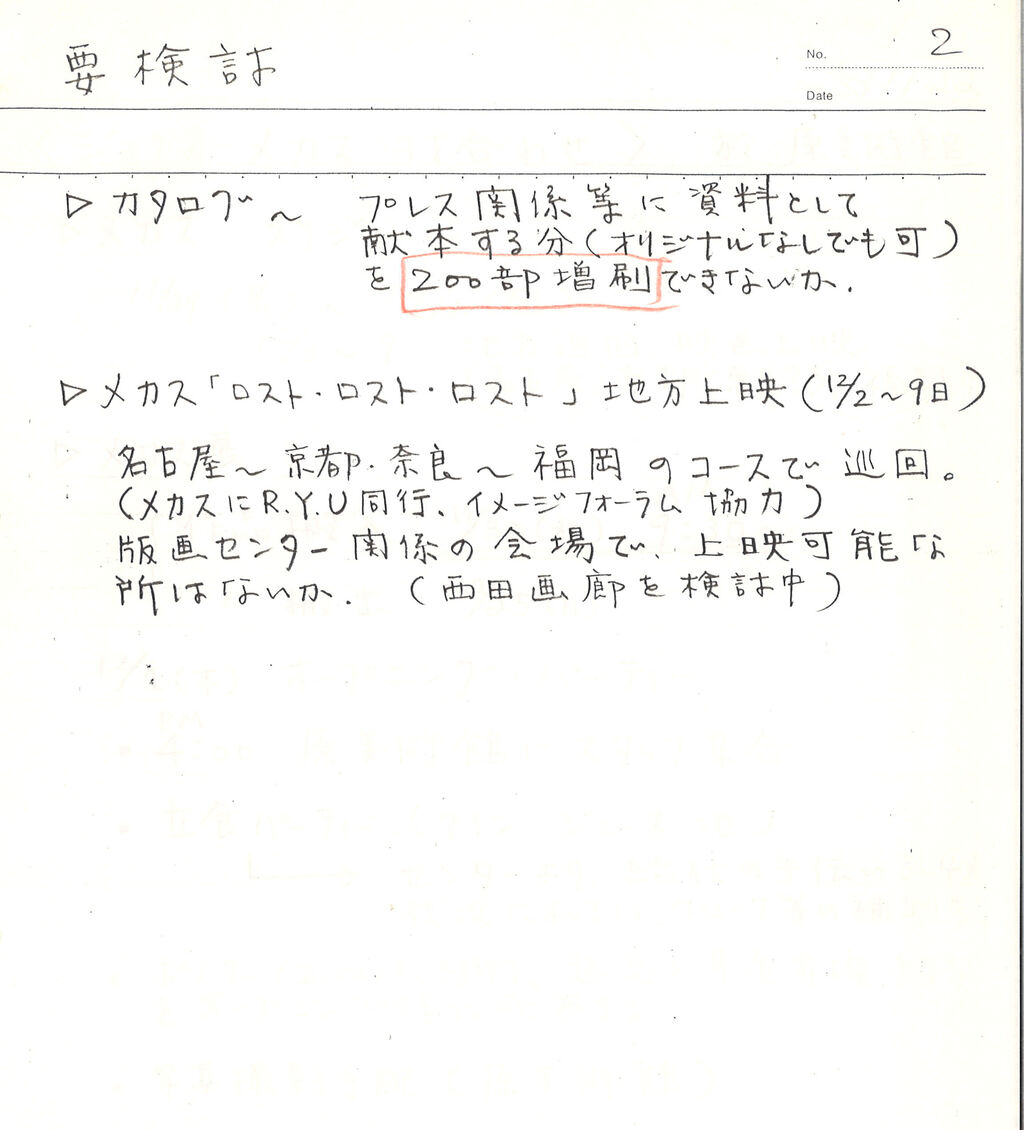 要検討
No. 2
Date
▷ カタログ〜 プレス関係等に資料として
献本する分(オリジナルなしでも可)
を200部増刷できないか.
▷メカス「ロスト・ロスト・ロスト」地方上映(12/2〜9日)
名古屋〜京都・奈良〜福岡のコースで巡回。
(メカスにR.Y.U同行、イメージフォーラム協力)
版画センター関係の会場で、上映可能な
所はないか. (西田画廊を検討中)